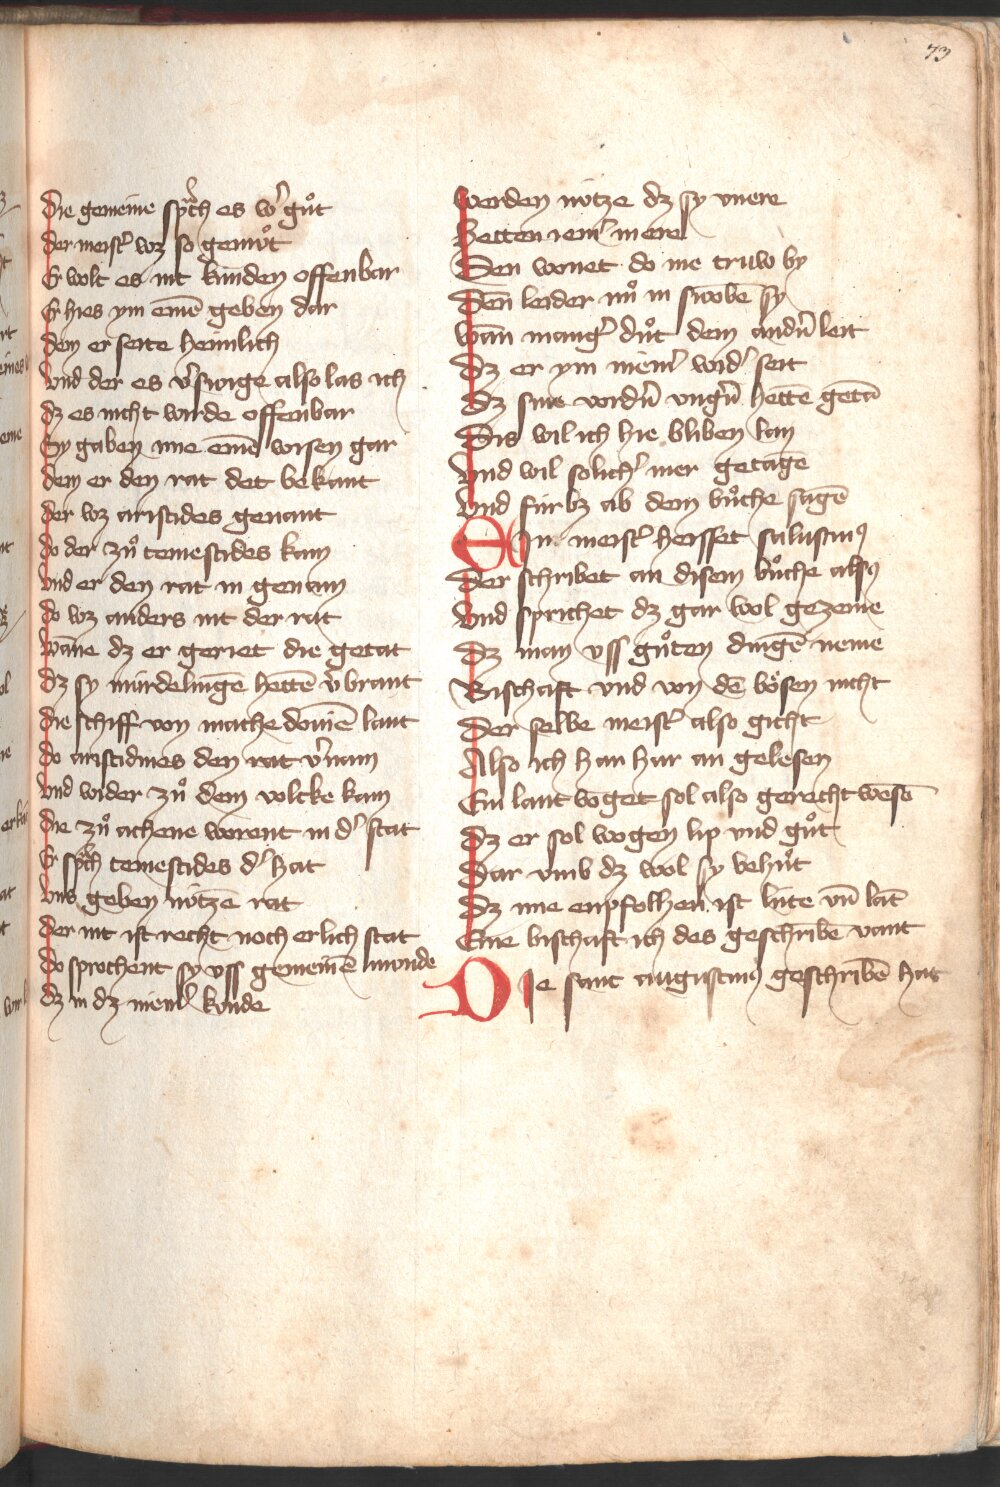 73
die gemeine sprͨh es wˀ guͦt
der meistˀ wz so gemuͦt
Er wolt es nit kúnden offenbar
Er hies ym einē geben dar
dem er seite heimlich
vnd der es v̾swige also las ich
dz es nicht wurde offenbar
Sy gaben ime einē wisen gar
dem er den rat det bekant
der wz aristides genant
do der zuͦ temestides kam
vnd er den rat in genam
do wz anders nit der rat
wāne dz er geriet die getat
dz sy mürdelingē hettē v̾brant
die schiff von mathedonīē lant
do aristidines den rat v̾nam
vnd wider zuͦ dem volcke kam
die zuͦ athene worent in dˀ stat
Er sprͨh temestides dˀ hat
vns geben nützē rat
der nit ist recht noch erlich stat
do sprochent sy vss gemeinē munde
dz in dz niemˀ kunde
werden nütze dz sy vnere
Hetten iemˀ mere
Den wonet do ine truw by
Den leider nuͦ in swobē sy
Wan mangˀ duͦt dem andn̄ leit
Dz er ym niemˀ widˀ seit
Dz sine vordn̄ vngn̄ hettē getā
Dis wil ich hie bliben lan
Vnd wil solichˀ mer getagē
Vnd fúrbz ab dem buͦche sagē
Ein meistˀ heisset salustinꝰ
Der schribet an disem buͦche alsꝰ
Vnd sprichet dz gar wol gezeme
Dz man vss guͦten dingē neme
Bischaft vnd von dē bösen nicht
Der selbe meistˀ also gicht
Also ich han har an gelesen
Ein lant voget sol also gerecht wesē
Dz er sol wogen lip vnd guͦt
Dar vmb dz wol sy behuͦt
Dz ime enpfolhen ist lúte vn̄ lāt
Eine bischaft ich des geschribē vant
Die sant augustinꝰ geschribē hat